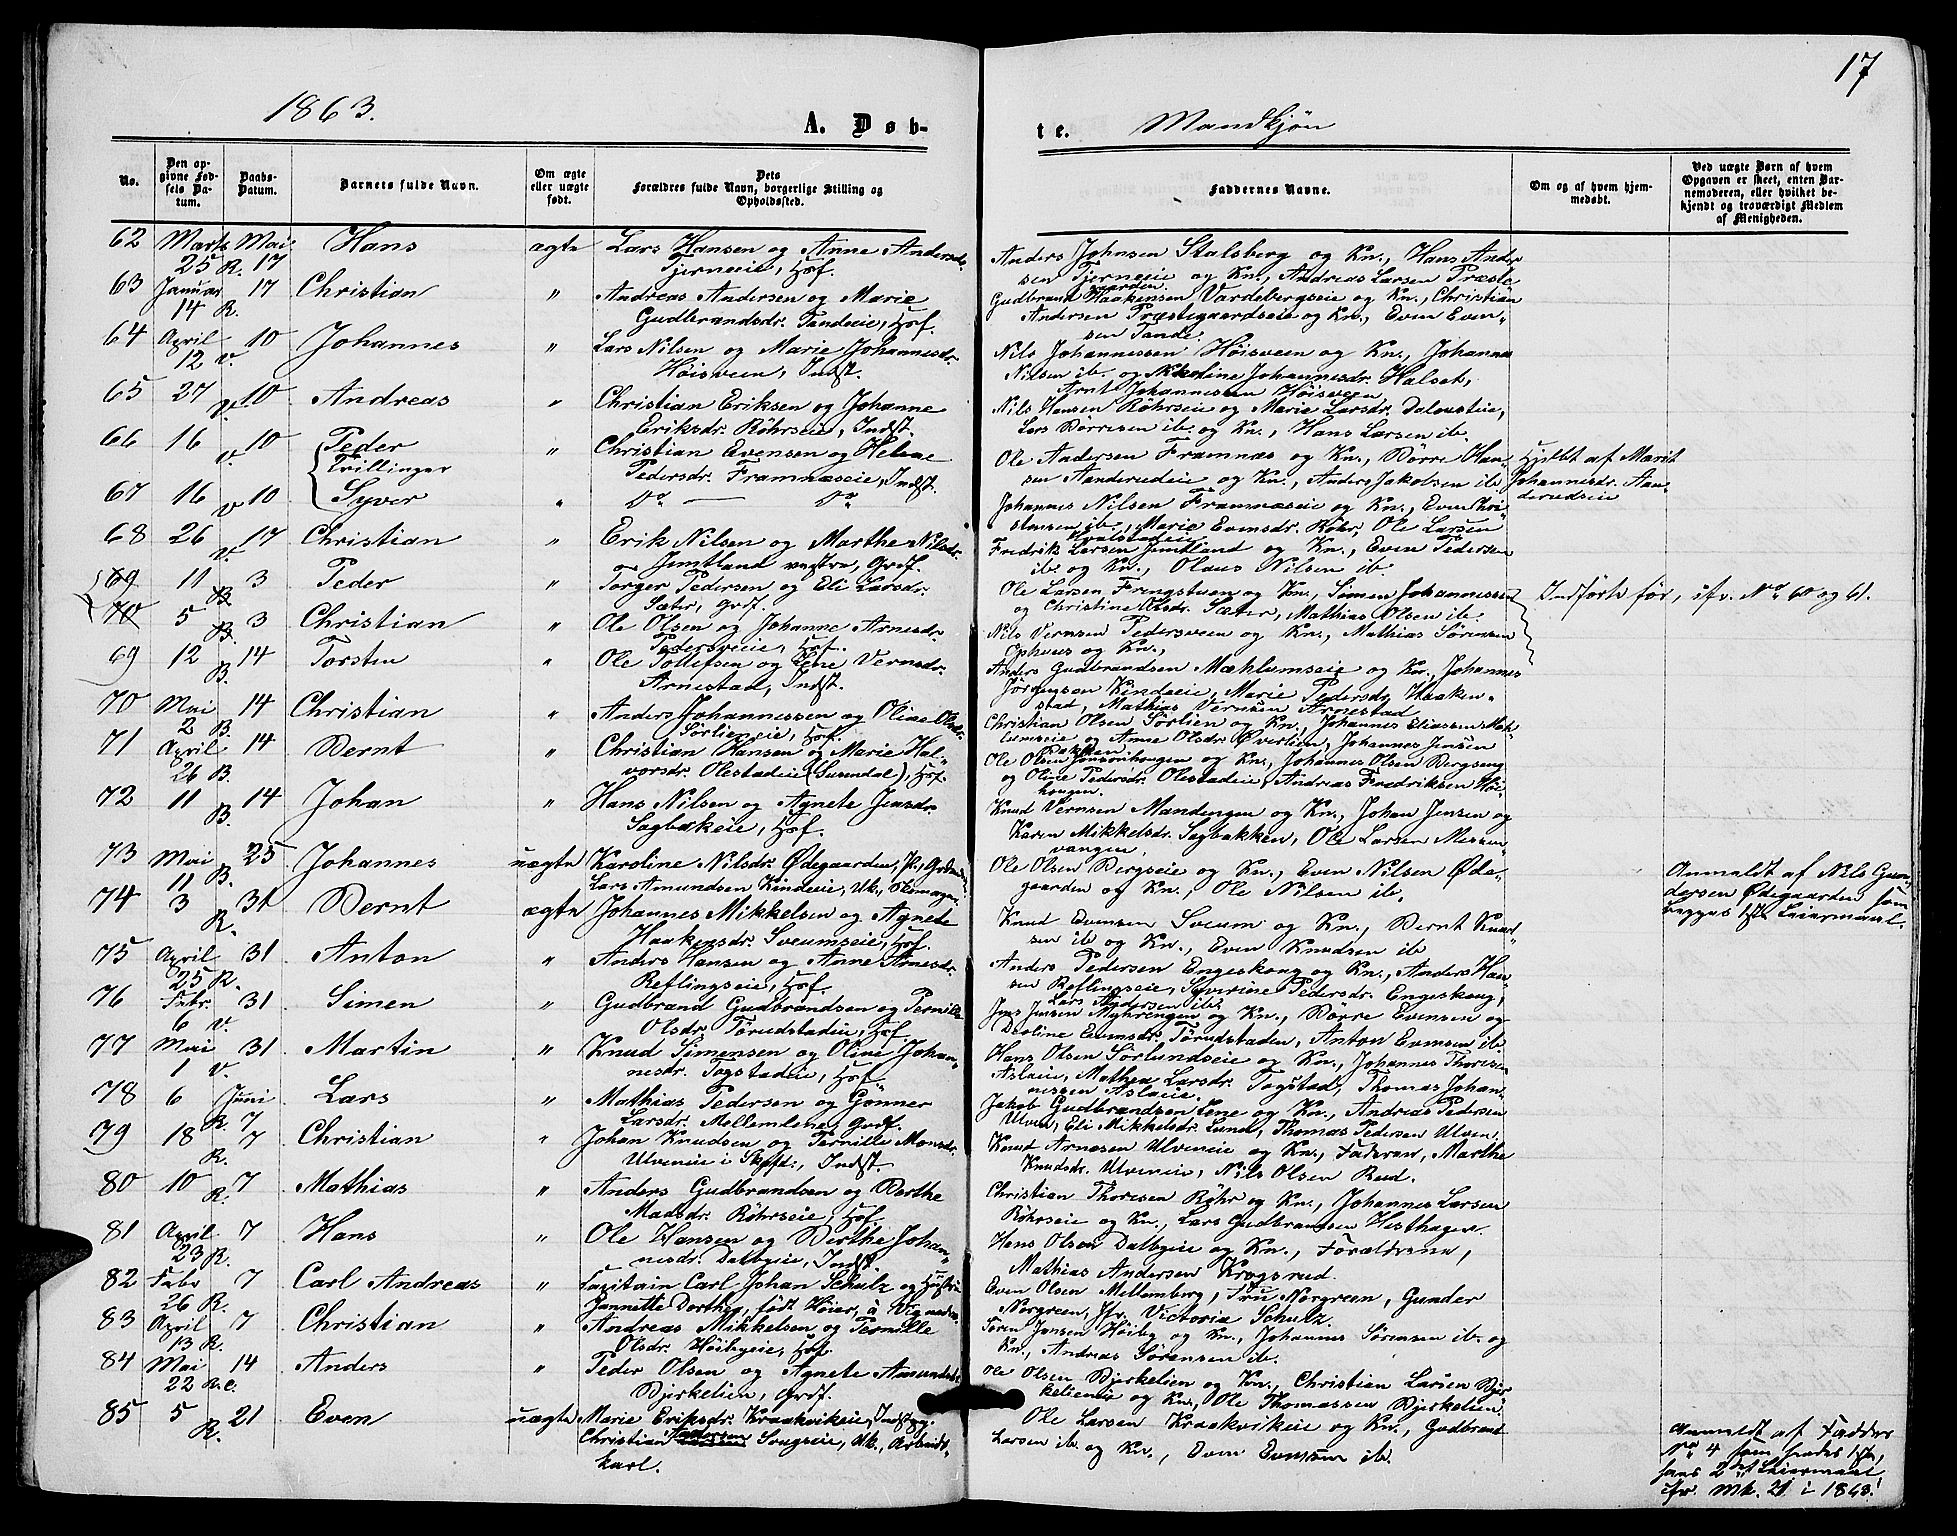 17
1863.
A. Døb-
te. Mandkjøn
No.
Den op-
givne Fød-
sels Da-
tum.
Daabs-
Datum.
Barnets fulde Navn.
Om ægte
eller uægte
født.
Dets
Forældres fulde Navn, borgerlige Stilling og
Opholdssted.
Faddernes Navne.
Om og af hvem hjem-
medøbt.
Ved uægte Børn af hvem
Opgaven er skeet, enten Bar-
nemoderen, eller hvilket be-
kjendt og troværdigt Medlem
af Menigheden.
62 Marts 25 R. Mai 17 Hans ægte Lars Hansen og Anne Andersdr.
Tjerneeie, Hof.
Anders Johnsen Stalsberg og Kn., Hans Ander
sen Tjerneeie og Kn., Andreas Larsen Præste
gaarden.
63 Januar 14 R. 17 Christian " Andreas Andersen og Marie
Gudbrandsdr. Tandeeie, Hof.
Gudbrand Haakensen Vardebergseie og Kn., Christian
Andersen Præstegaardseie og Kn., Even Even-
sen Tande.
64 April 12 V. 10 Johannes " Lars Nilsen og Marie Johannesdr.
Høisveen, Indst.
Nils Johannessen Høisveen og Kn., Johannes
Nilsen ib. og Johannesdr. Halset,
Arnt Johannessen Høisveen
65 27 V. 10 Andreas " Christian Eriksen og Johanne
Eriksdr. Röhrseie, Indst.
Nils Hansen Röhrseie og Marie Larsdr.
Lars Børresen ib. og Kn., Hans Larsen ib.
66 16 V. 10 Peder " Christian Evensen og Helene
Tvillinger
Pedersdr. Framnæseie, Indst.
Ole Andersen Framnæs og Kn., Børre Han-
sen Aanderudeie og Kn., Anders Jakobsen ib
Hjdbt af Marit
Johannesdr. Aan-
derudseie
67 16 V 10 Syver " Do — Do
Johannes Nilsen Framnæseie og Kn., Even Chri-
stensen ib., Marie Evensdr. Röhr, Ole Larsen
Kvalstadeie.
68 26 V. 17 Christian " Erik Nilsen og Marthe Nilsdr.
Jemtland vestre, Grdf.
Fredrik Larsen Jemtland og Kn., Even Pedersen
ib. og Kn., Olaus Nilsen ib.
69 11 B 3 Peder " Torger Pedersen og Eli Larsdr.
Sæter, Grdf.
Ole Larsen Fringstuen og Kn., Simen Johannessen
og Christine Olsdr. Sæter, Mathias Olsen ib.
Indförte för, cfr. No 60 og 61.
70 5 B. 3 Christian " Ole Olsen og Johanne Arnesdr.
Pedersveeie, Hof.
Nils Vernsen Pedersveen og Kn., Mathias Sörensen
Ophuus og Kn.,
69 12 B. 14 Torsten " Ole Tollefsen og Lene Vernsdr.
Arnestad, Indst.
Anders Gudbrandsen Mæhlumseie og Kn., Johannes
Jörgensen Kindeeie, Marie Pedersdr. Haaken-
stad, Mathias Vernsen Arnestad
70 Mai 2 B. 14 Christian " Anders Johannessen og Oline Olsdr.
Sörlieneie, Hof.
Christian Olsen Sörlien og Kn., Johannes Eliassen Mæh-
lumseie og Anne Olsdr. Överlien, Johannes Jensen
Bakken.
71 April 26 B. 14 Bernt " Christian Hansen og Marie Hal-
vorsdr. Olestadeie (Surendal), Hof.
Ole Olsen Jonsonhougen og Kn., Johannes Olsen Bergseng
og Oline Pedersdr. Olestadeie, Andreas Fredriksen Høi-
hougen.
72 11 B. 14 Johan " Hans Nilsen og Agnete Jensdr.
Sagbakeie, Hof.
Knud Vernsen Mandengen og Kn., Johan Jensen og
Karen Mikkelsdr. Sagbakken, Ole Larsen Messen-
vangen.
73 Mai 11 B. 25 Johannes uægte Karoline Nilsdr. Ødegaarden, P.,
Lars Amundsen Kindeeie, Uk., Skomager
Ole Olsen Bergseie og Kn., Even Nilsen Øde-
gaarden og Kn., Ole Nilsen ib.
Anmeldt af Nils Gun-
dersen Ødegaarden som
begges 1ste Leiermaal.
74 3 R. 31 Bernt ægte Johannes Mikkelsen og Agnete
Haakensdr. Sveumseie, Hof.
Knud Evensen Sveum og Kn., Bernt Knud-
sen ib og Kn., Even Knudsen ib
75 April 25 R. 31 Anton " Anders Hansen og Anne Arnesdr.
Reflingseie, Hof.
Anders Pedersen Engeskoug og Kn., Anders Han-
sen Reflingseie, Syverine Pedersdr. Engeskoug,
Lars Andersen ib.
76 Febr. 6 V. 31 Simen " Gudbrand Gudbrandsen og Pernille
Olsdr. Törudstadeie, Hof.
Jens Jensen Myhrengen og Kn., Börre Evensen og
Evensdr. Törudstaden, Anton Evensen ib
77 Mai 1 V. 31 Martin " Knud Simensen og Oline Johan-
nesdr. Togstadeie, Hof
Hans Olsen Sørlundseie og Kn., Johannes Thoresen
Aslaeie, Mathea Larsdr. Togstad, Thomas Johan-
nessen Aslaeie.
78 6 R. Juni 7 Lars " Mathias Pedersen og Gönner
Larsdr. Mellemlene, Grdf.
Jakob Gudbrandsen Lene og Kn., Andreas Pedersen
Ulven, Eli Mikkelsdr. Lund, Thomas Pedersen Ulven.
79 18 R. 7 Christian " Johan Knudsen og Pernille Monsdr.
Ulveneie i Skofd:, Indst.
Knud Arnesen Ulveneie og Kn., Faderen, Marthe
Knudsdr. Ulveneie, Nils Olsen Rud.
80 10 R. 7 Mathias " Anders Gudbrandsen og Berthe
Madsdr. Röhrseie, Hof.
Christian Thoresen Röhr og Kn., Johannes Larsen
Röhrseie og Kn., Lars Gudbrandsen Hesthagen.
81 April 23 R. 7 Hans " Ole Hansen og Berthe Johan-
nesdr. Dalbyeie, Indst.
Hans Olsen Dalbyeie og Kn., Forældrene,
Mathias Andersen Krogsrud.
82 Febr 26 R. 7 Carl Andreas " Capitain Carl Johan Schulz og Hustru
Jannette Dorthea, født Høier,
Even Olsen Mellemberg, Fru Norgreen, Gunder
Norgreen, Jfr. Victoria Schulz.
83 April 13 R. 7 Christian " Andreas Mikkelsen og Pernille
Olsdr. Höibyeie, Hof
Sören Jensen Höiby og Kn., Johannes Sörensen ib. og
Kn., Andreas Sörensen ib.
84 Mai 22 R.C. 14 Anders " Peder Olsen og Agnete Amundsdr.
Bjerkelien, Grdf.
Ole Olsen Bjerkelien og Kn., Christian Larsen Bjer-
kelieneie og Kn., Ole Thomassen Bjerkelien
85 5 R. 21 Even uægte Marie Eriksdr. Kraakvikeie, Indst.
Christian Andersen Sougseie, Uk., Arbeids-
karl.
Ole Larsen Kraakvikeie og Kn., Gudbrand
Larsen ib. og Kn., Even Evensen ib.
Anmeldt af Fadder
No 4 som hendes 1ste,
hans 2det Leiermaal,
cfr. Mk. 21 i 1863.